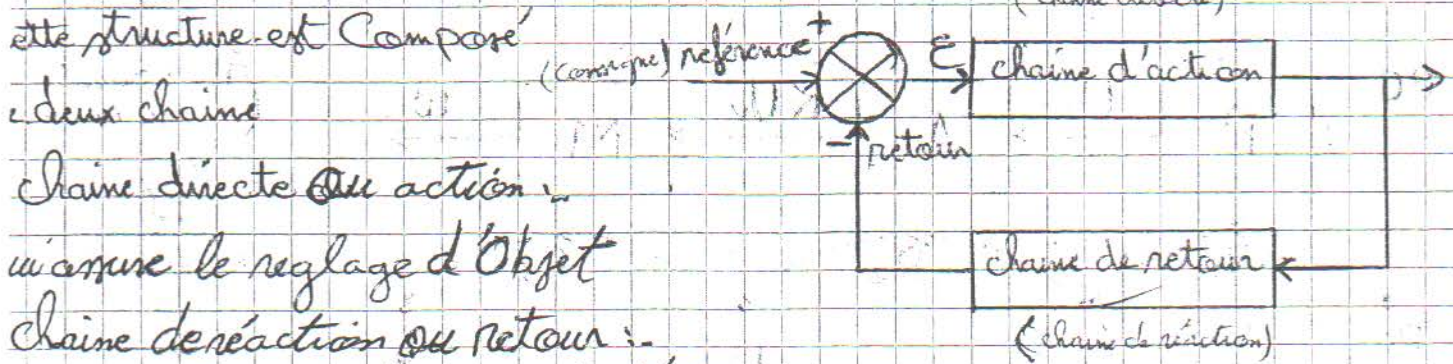 ette structure est Composé
deux chaine
chaine directe ou action :
ui assure le reglage d'Objet
chaine de réaction ou retour :
(consigne) référence +
ε
chaine d'action
- retour
chaine de retour
(chaine de réaction)